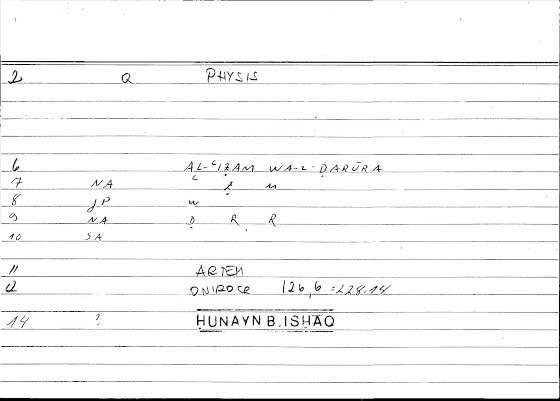 2 Q PHYSIS
6 AL-ʿIẒAM WA-L-ḌARŪRA
7 NA ʿ Ẓ M
8 JP W
9 NA Ḍ R R
10 SA
11 ARTEM
12 ONIROCR 126,6 = 228.14
14 ? HUNAYN B. ISHAQ